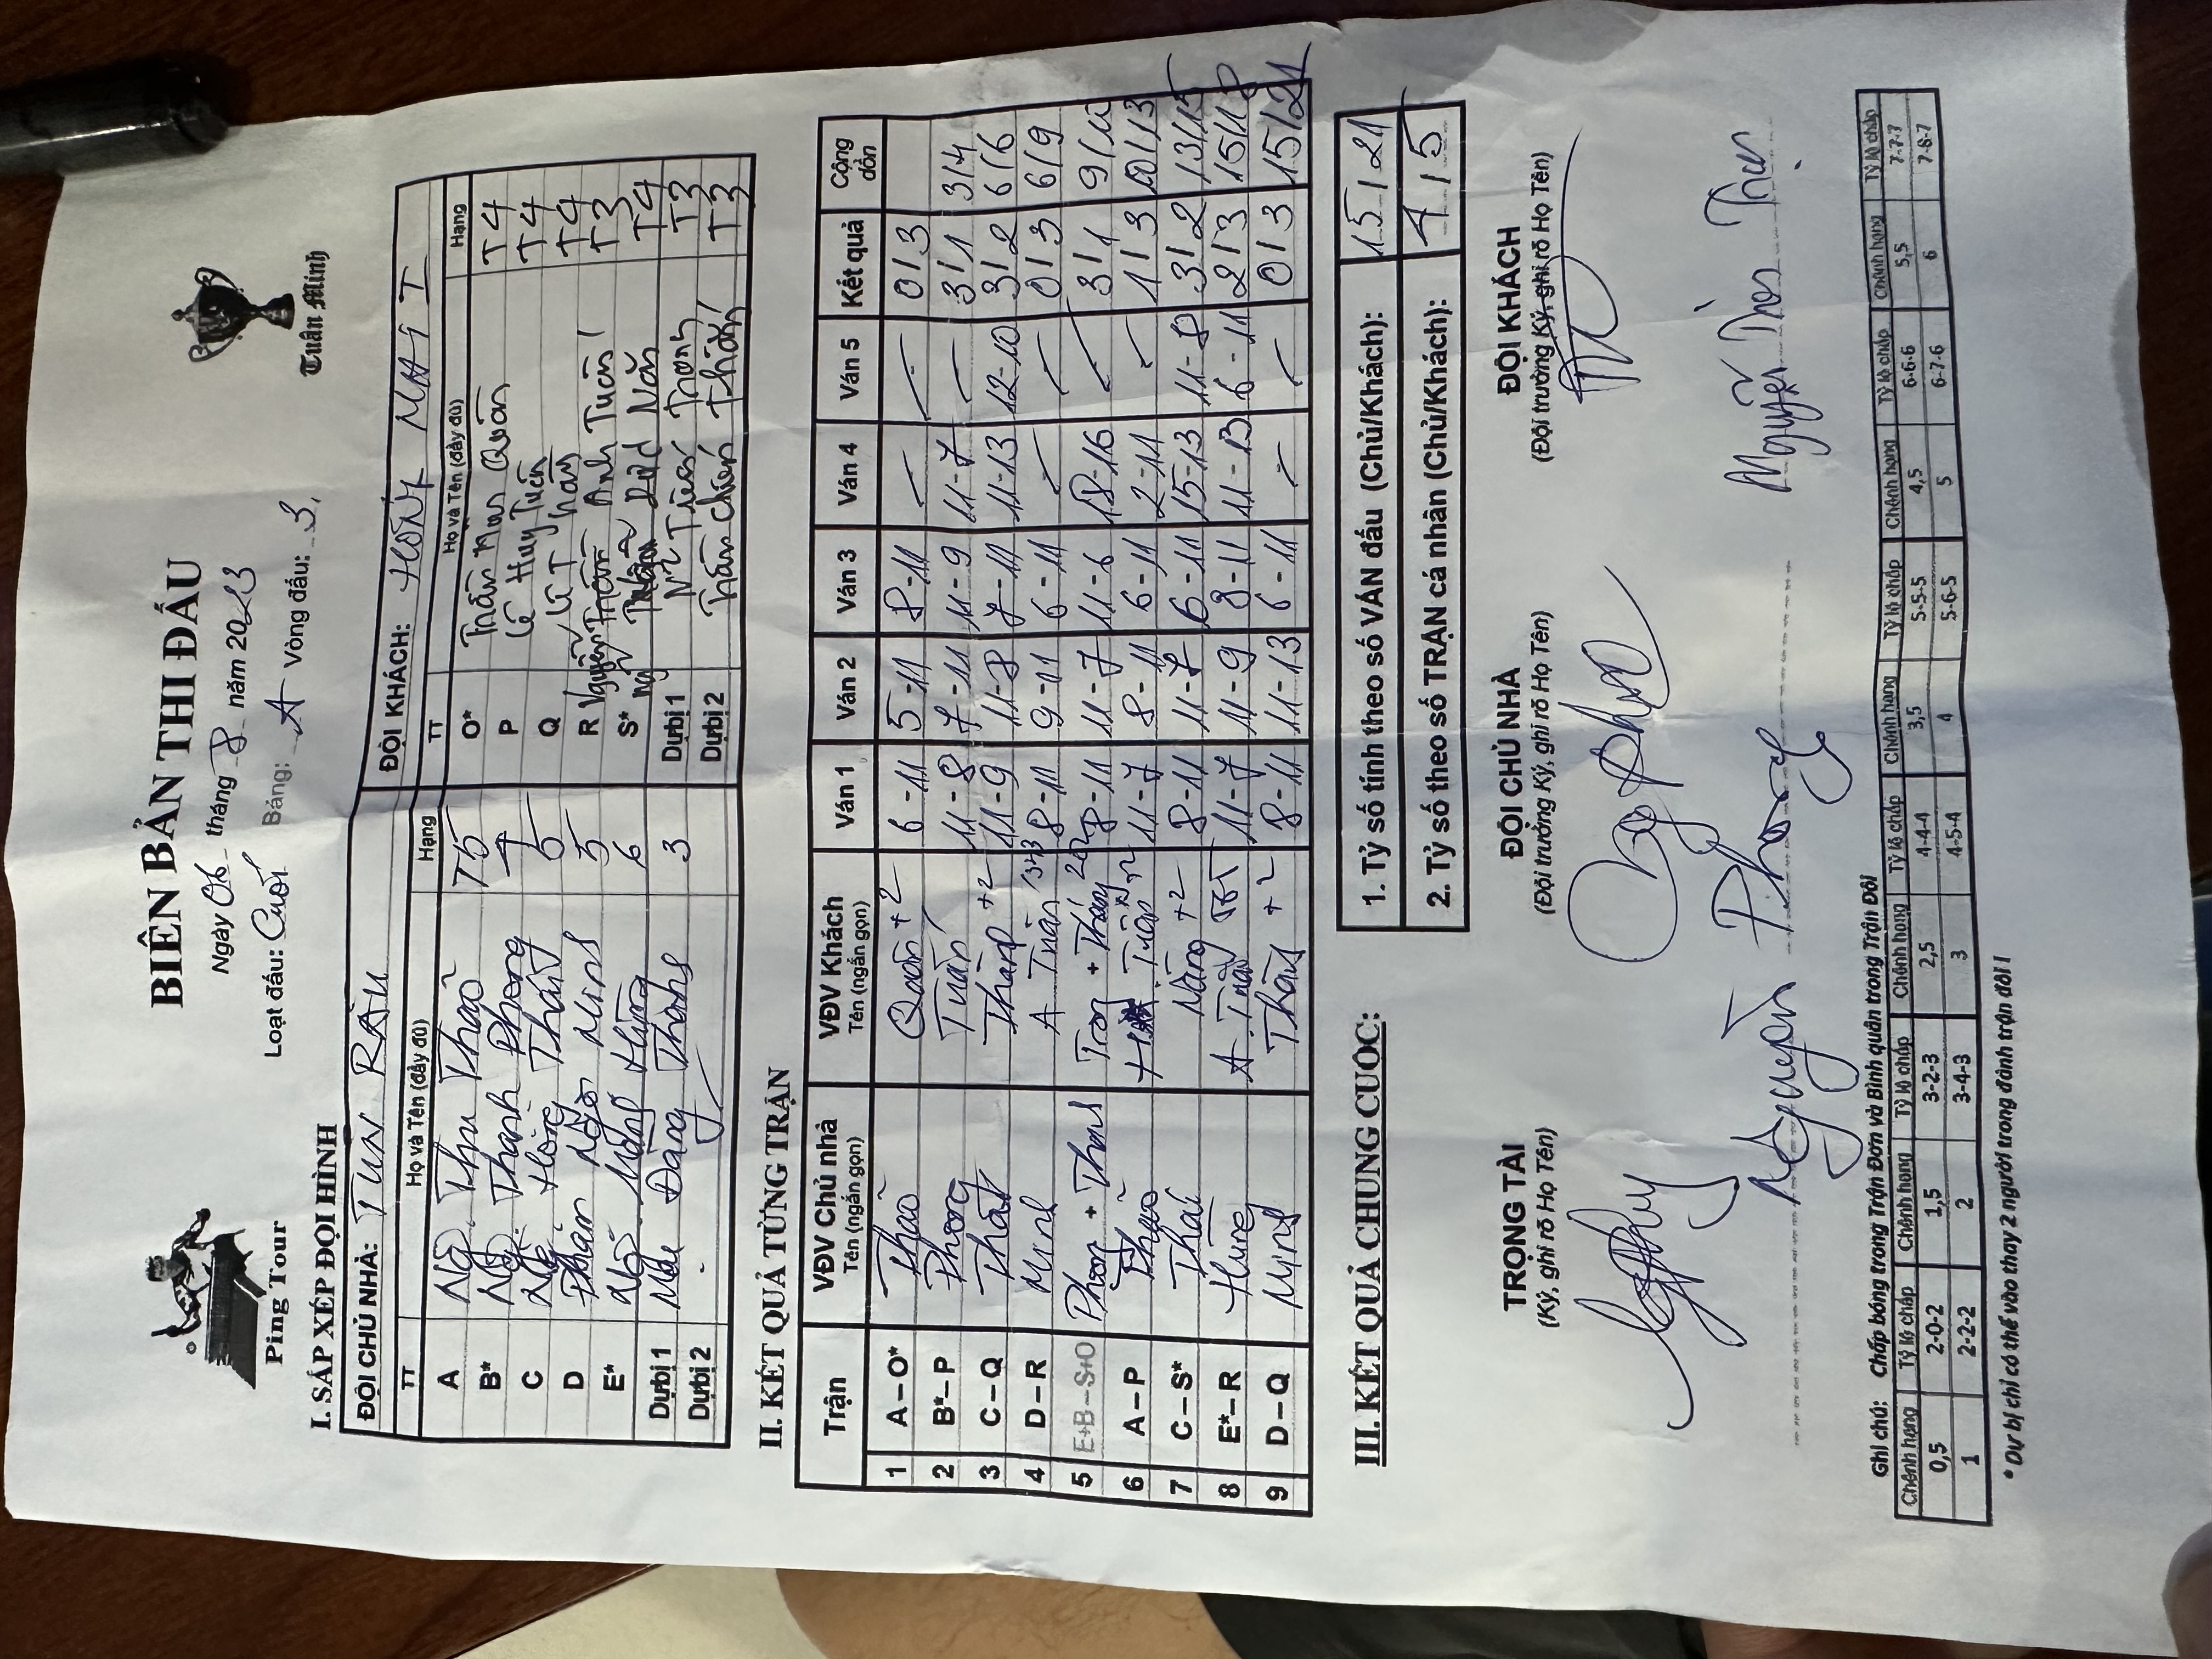 Ping Tour
BIÊN BẢN THI ĐẤU
Tuấn Minh
Ngày 06 tháng 8 năm 2023
Loạt đấu: Cuối Bảng: A Vòng đấu: 3
I. SẮP XẾP ĐỘI HÌNH
ĐỘI CHỦ NHÀ: TUN RÂU ĐỘI KHÁCH:
TT Họ và Tên (đầy đủ) Hạng TT Họ và Tên (đầy đủ) Hạng
A Thu Thảo T5 O* Trần Quân T4
B* Thanh Phong 4 P Lê Huy Tuấn T4
C Hồng Thất 5 Q T4
D Phan Minh 5 R Nguyễn Trần Anh Tuấn T3
E* Mạnh Hùng 6 S* Năng T4
Dự bị 1 Đăng Thanh 3 Dự bị 1 Tiến Trọng T3
Dự bị 2 Dự bị 2 Trần Chiến Thắng T3
II. KẾT QUẢ TỪNG TRẬN
Trận VĐV Chủ nhà Tên (ngắn gọn) VĐV Khách Tên (ngắn gọn) Ván 1 Ván 2 Ván 3 Ván 4 Ván 5 Kết quả Cộng dồn
1 A – O* Thảo Quân +2 6-11 5-11 8-11 – – 0/3
2 B* – P Phong Tuấn 11-8 7-11 11-9 11-7 – 3/1 3/4
3 C – Q Thất +2 11-9 11-8 7-11 11-13 12-10 3/2 6/6
4 D – R Minh A Tuấn 8-11 9-11 6-11 – – 0/3 6/9
5 E+B – S+O Phong + Thanh Trọng + Thắng 8-11 11-7 11-6 18-16 – 3/1 9/10
6 A – P Thảo Tuấn 11-7 8-11 6-11 2-11 – 1/3 10/13
7 C – S* Năng +2 8-11 11-7 6-11 15-13 11-8 3/2 13/15
8 E* – R Hùng A. Tuấn 11-7 11-9 8-11 11-13 6-11 2/3 15/18
9 D – Q Minh +2 8-11 11-13 6-11 – 0/3 15/21
III. KẾT QUẢ CHUNG CUỘC:
1. Tỷ số tính theo số VÁN đấu (Chủ/Khách): 15/21
2. Tỷ số theo số TRẬN cá nhân (Chủ/Khách): 4/5
TRỌNG TÀI ĐỘI CHỦ NHÀ ĐỘI KHÁCH
(Ký, ghi rõ Họ Tên) (Đội trưởng Ký, ghi rõ Họ Tên) (Đội trưởng Ký, ghi rõ Họ Tên)
Nguyễn Phong Nguyễn
Ghi chú: Chấp bóng trong Trận Đơn và Bình quân trong Trận Đôi
Chênh hạng Tỷ lệ chấp Chênh hạng Tỷ lệ chấp Chênh hạng Tỷ lệ chấp Chênh hạng Tỷ lệ chấp Chênh hạng Tỷ lệ chấp Chênh hạng Tỷ lệ chấp
0,5 2-0-2 1,5 3-2-3 2,5 4-4-4 3,5 5-5-5 4,5 6-6-6 5,5 7-7-7
1 2-2-2 2 3-4-3 3 4-5-4 4 5-6-5 5 6-7-6 6 7-8-7
* Dự bị chỉ có thể vào thay 2 người trong đánh trận đôi !